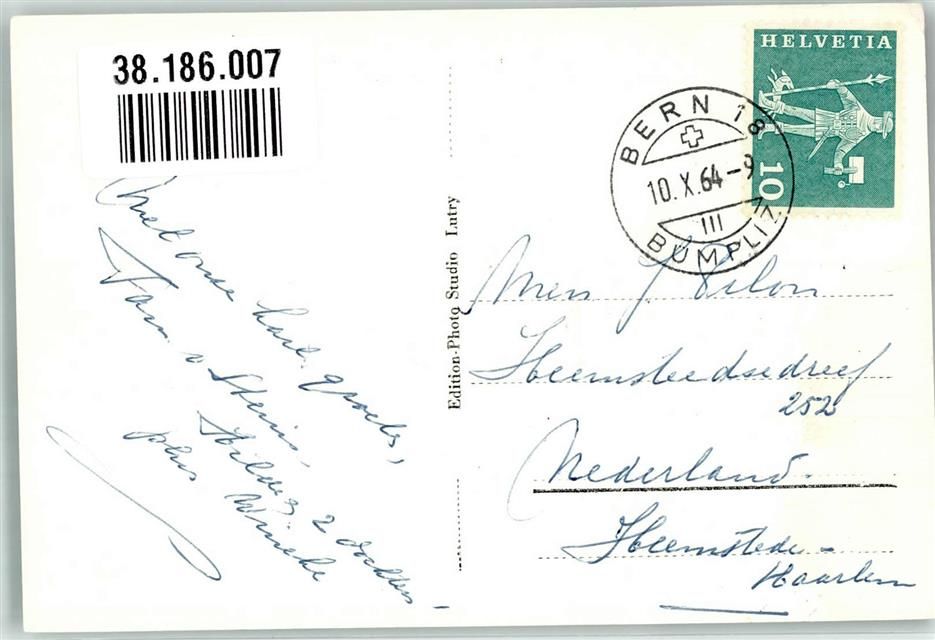 38.186.007
HELVETIA
10
BERN 18
10.X.64-9
III
BÜMPLIZ
Edition-Photo Studio Lutry
Met onze hart. groeten,
Fam. v
2 dochters -
plus
Heemsteedsedreef
252
Nederland.
Heemstede -
Haarlem